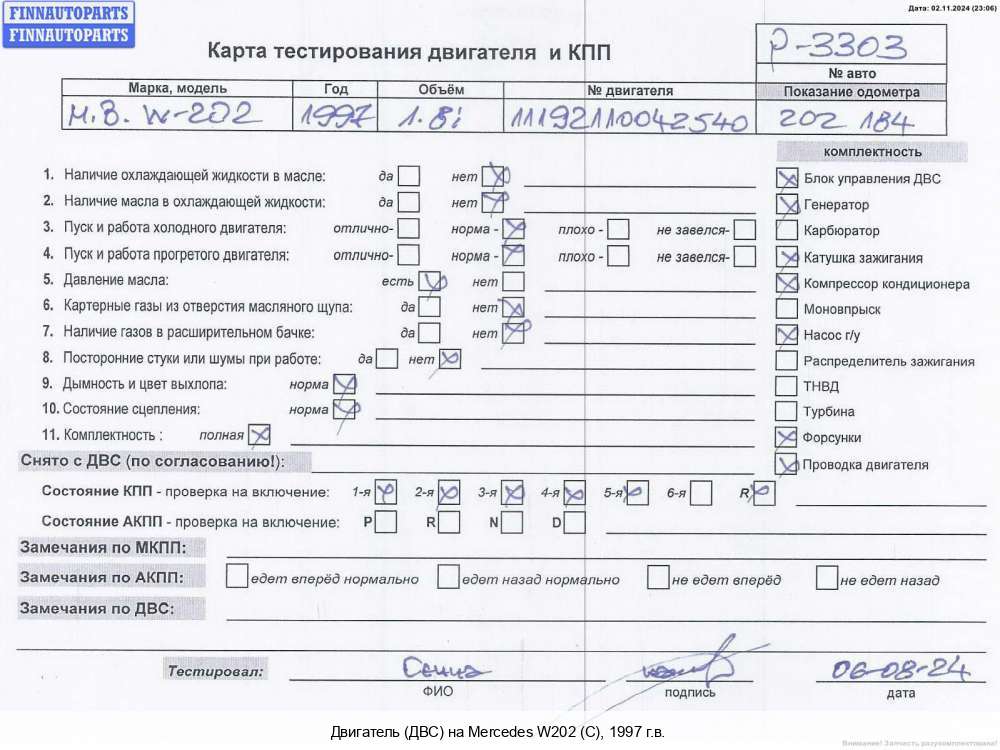 FINNAUTOPARTS
FINNAUTOPARTS
Дата: 02.11.2024 (23:06)
Карта тестирования двигателя и КПП
P-3303
№ авто
Марка, модель Год Объём № двигателя Показание одометра
М.В. W-202 1997 1.8i 11192110042540 202 184
комплектность
1. Наличие охлаждающей жидкости в масле: да нет
Блок управления ДВС
2. Наличие масла в охлаждающей жидкости: да нет
Генератор
3. Пуск и работа холодного двигателя: отлично- норма - плохо - не завелся-
Карбюратор
4. Пуск и работа прогретого двигателя: отлично- норма - плохо - не завелся-
Катушка зажигания
5. Давление масла: есть нет
Компрессор кондиционера
6. Картерные газы из отверстия масляного щупа: да нет
Моновпрыск
7. Наличие газов в расширительном бачке: да нет
Насос г/у
8. Посторонние стуки или шумы при работе: да нет
Распределитель зажигания
9. Дымность и цвет выхлопа: норма
ТНВД
10. Состояние сцепления: норма
Турбина
11. Комплектность : полная
Форсунки
Снято с ДВС (по согласованию!):
Проводка двигателя
Состояние КПП - проверка на включение: 1-я 2-я 3-я 4-я 5-я 6-я R
Состояние АКПП - проверка на включение: P R N D
Замечания по МКПП:
Замечания по АКПП: едет вперёд нормально едет назад нормально не едет вперёд не едет назад
Замечания по ДВС:
Тестировал: 06-08-24
ФИО подпись дата
Двигатель (ДВС) на Mercedes W202 (C), 1997 г.в.
Внимание! Запчасть разукомплектована!